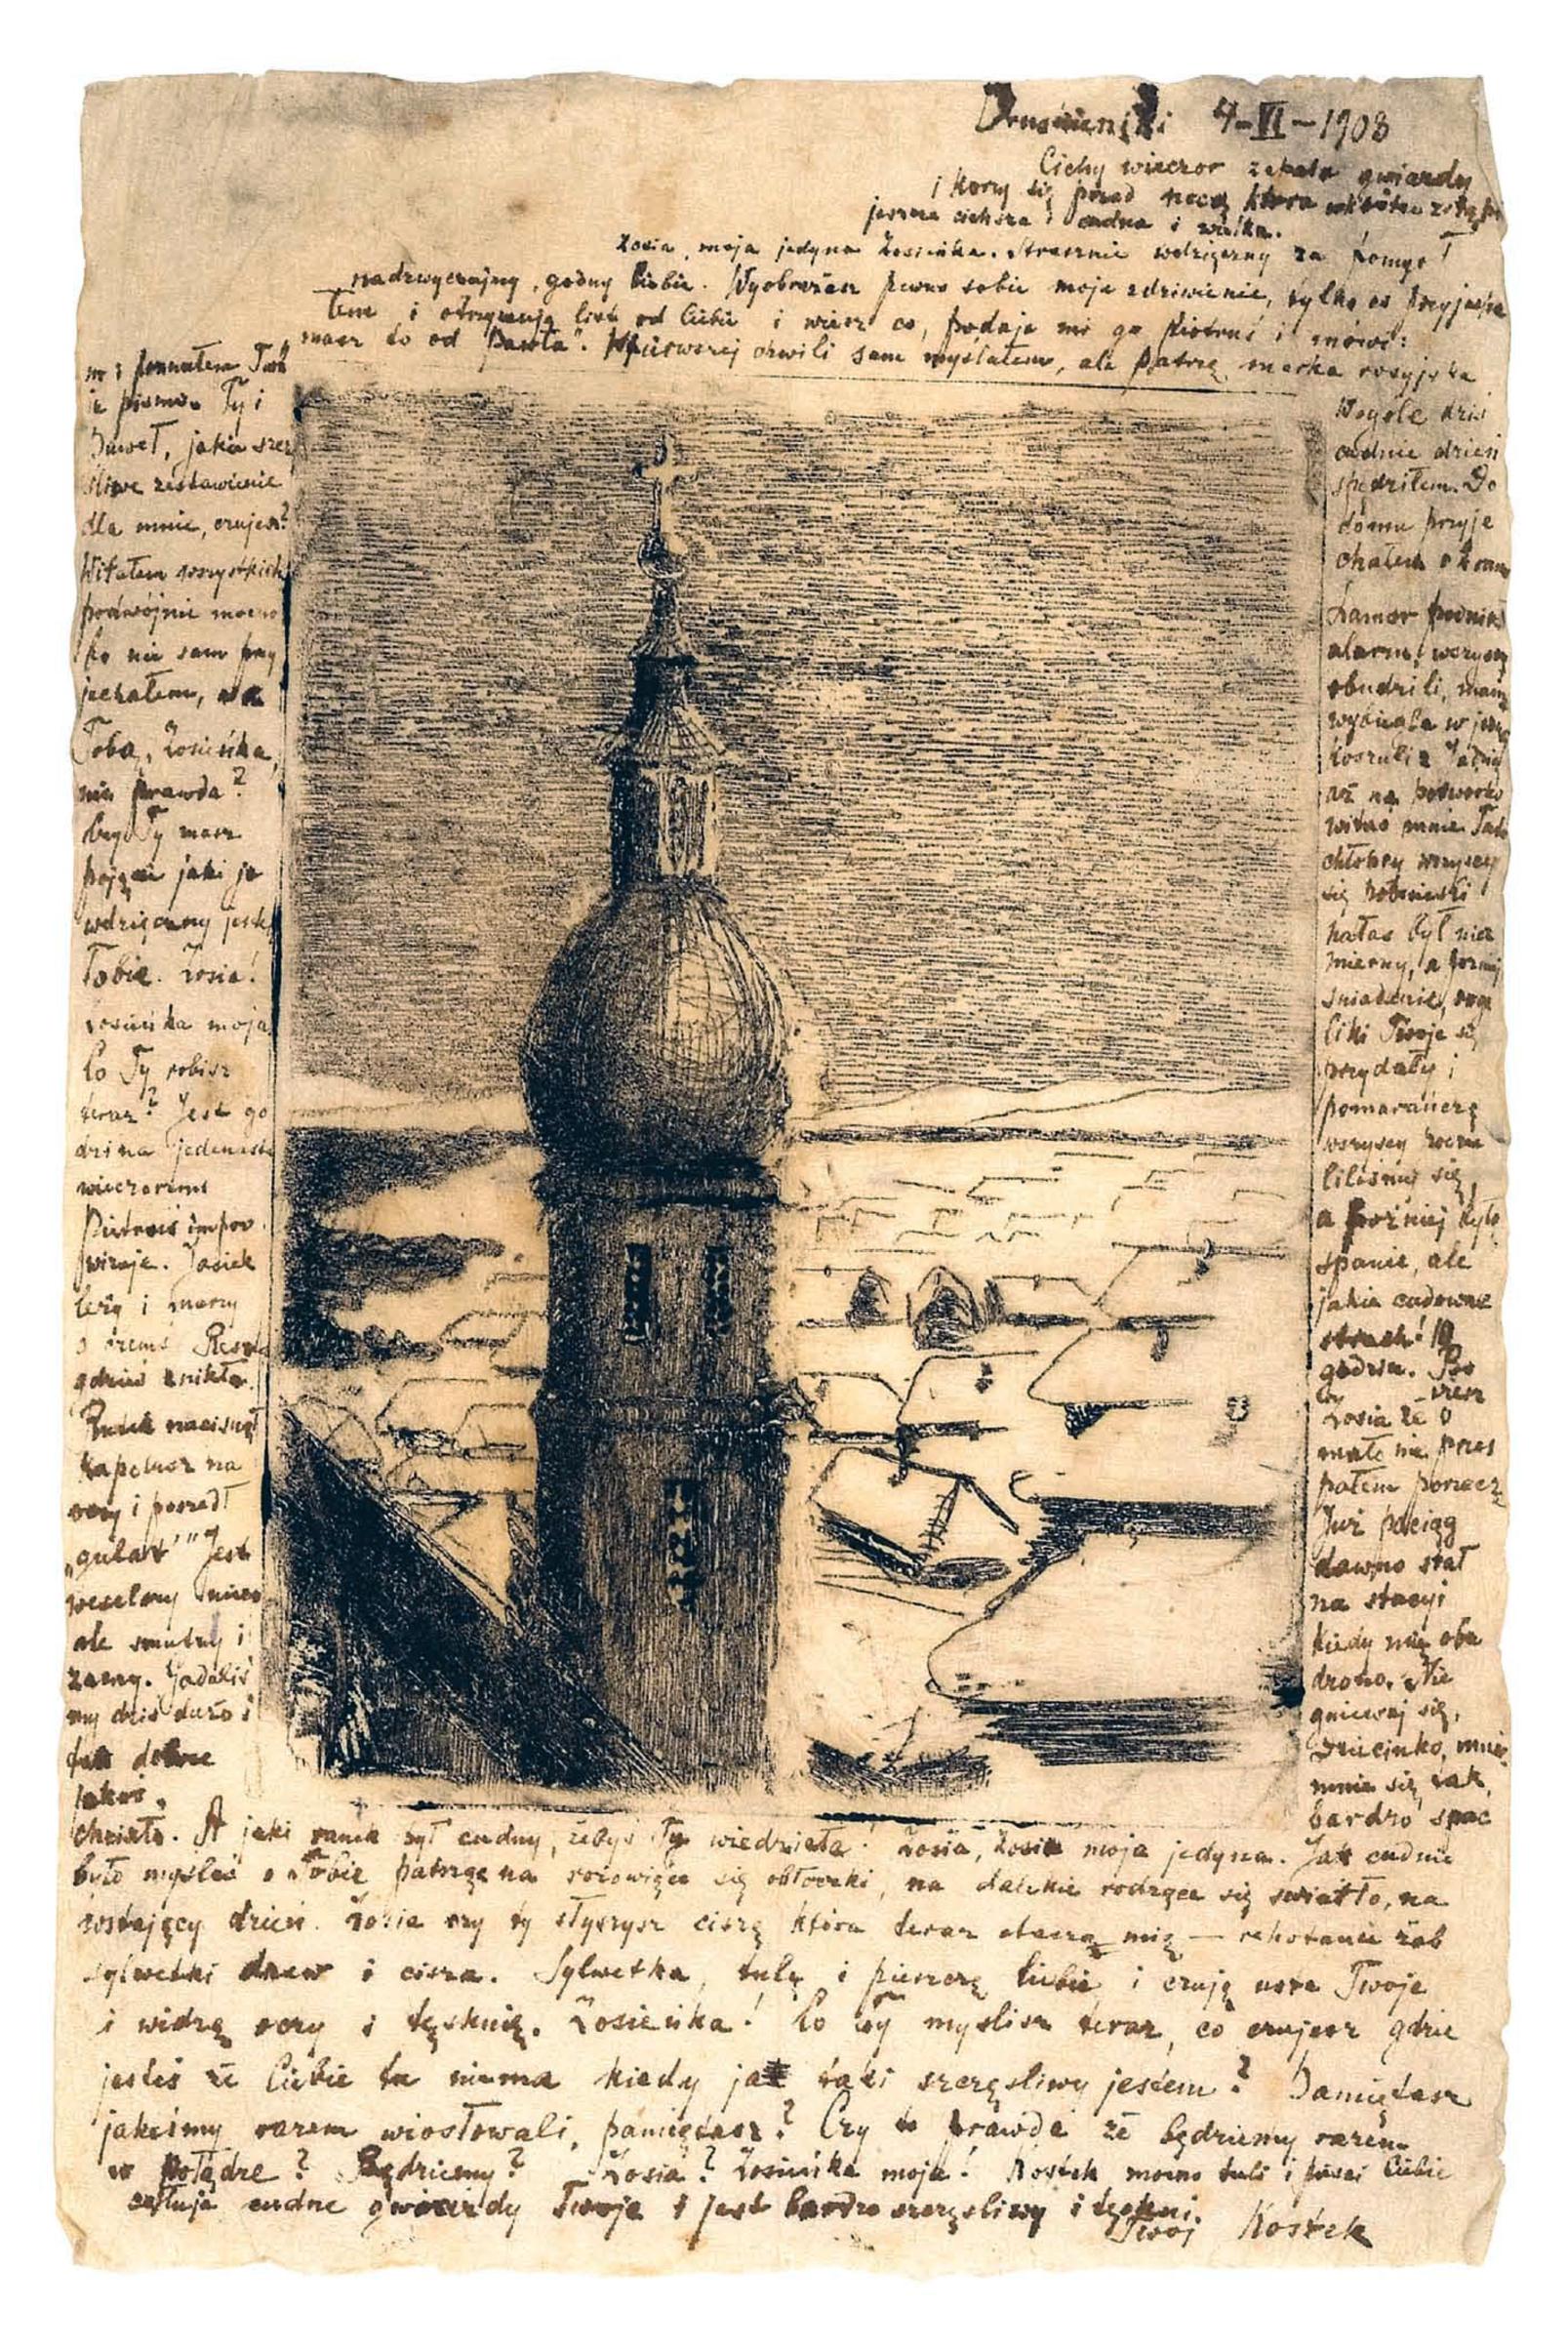 Druskieniki 4-VI-1908
Cichy wieczor zapala gwiazdy
i korzy się przed nocą ktora wkrótce zstąpi
jeszcze cichsza i cudna i wielka.
Zosia, moja jedyna Zosieńka. Strasznie wdzięczny za pomysł
nadzwyczajny, godny Ciebie. Wyobrażasz pewno sobie moje zdziwienie, tylko co przyjecha
łem i otrzymuję list od Ciebie i wiesz co, podaje mi go Piotruś i mówi:
"masz to od Pawła". W pierwszej chwili sam myślałem, ale patrzę marka rosyjska
no i poznałem Two
je pismo. Ty i
Paweł, jakie szczę
śliwe zestawienie
dla mnie, czujesz?
Witałem wszystkich
podwójnie mocno
bo nie sam przy
jechałem, a z
Tobą, Zosieńka,
nie prawda?
Czy Ty masz
pojęcie jaki ja
wdzięczny jest
Tobie. Zosia!
Zosieńka moja
Co Ty robisz
teraz? Jest go
dzina jedenasta
wieczorem
Piotruś impro
wizuje. Jasiek
leży i marzy
o czemś Reszta
gdzieś znikła.
nacisnął
kapelusz na
oczy i poszedł
"gulać" Jest
wesoły nieco
ale smutny i
zadaliś
my dziś dużo i
tak dobrze
jakoś,
Wogóle dziś
cudnie dzień
spędziłem. Do
domu przyje
chałem o 4 rano
Hamor podniósł
alarm, wszyscy
obudzili, mama
wybiegła w jednej
koszuli z Jadzią
aż na podworko
witać mnie Tata
chłopcy wszyscy
się
hałas był nie
mierny, a poznij
sniadanie, roga
liki Twoje się
przydały i
pomarańczą
wszyscy
liliśmy się,
a poźniej było
spanie, ale
jakie cudowne
strach! 10
godzin. Bo
Zosia że o
mało nie prze
pałem porzecz
Już pociąg
dawno stał
na stacyi
kiedy mię obu
dzono. Nie
gniewaj się,
Dziecinko,
mnie się tak
bardzo spać
chciało. A jaki ranek był cudny, żebyś Ty wiedziała! Zosia, Zosia moja jedyna. Jak cudnie
było myśleć o Tobie patrząc na rożowiące się obłoczki, na dalekie rodzące się swiatło, na
wstający dzien. Zosia czy ty słyszysz ciszę która teraz otacza mię — rehotanie żab
sylwetki drzew i cisza. Sylwetka, tulę i pieszczę Ciebie i czuję usta Twoje
i widzę oczy i tęsknię. Zosieńka! Co Ty myslisz teraz, co czujesz gdzie
jesteś że Ciebie tu niema kiedy ja taki szczęsliwy jestem? Pamiętasz
jakeśmy razem wiosłowali, pamiętasz? Czy to prawda że będziemy razem
w Połądze? Będziemy? Zosia? Zosieńka moja! Kostek mocno tuli i pieści Ciebie
całuje cudne gwiazdy Twoje i jest bardzo szczęsliwy i tęskni.
Twoj Kostek